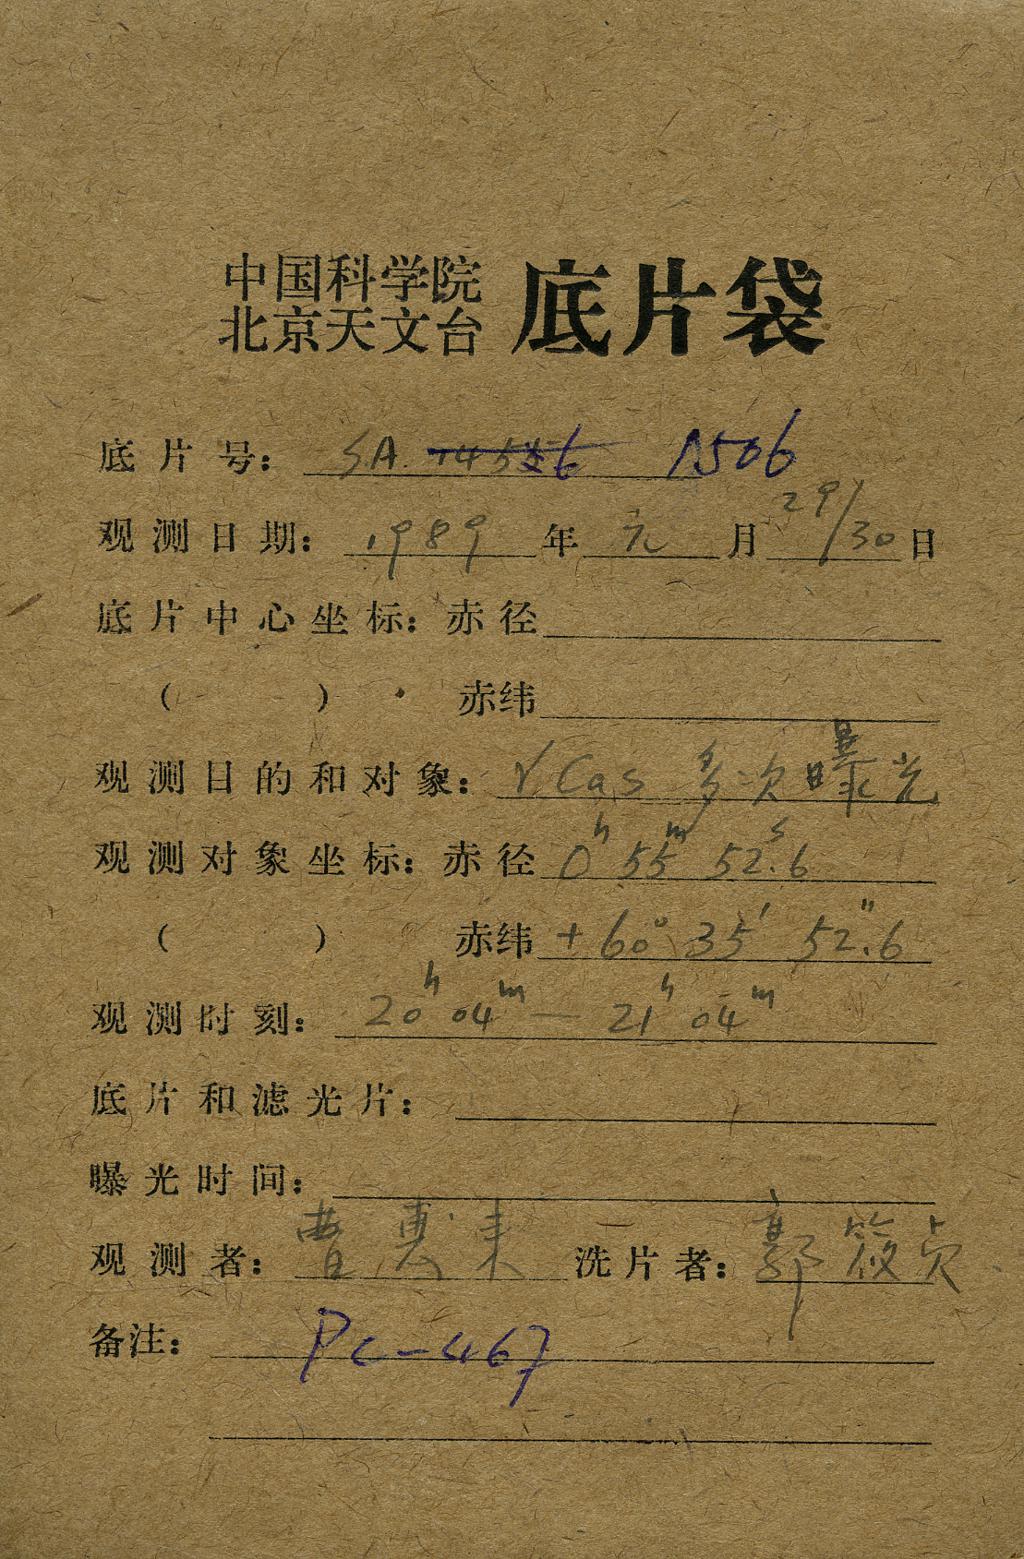 中国科学院
北京天文台 底片袋
底片号: SA 1506
观测日期: 1989 年 元 月 29/30 日
底片中心坐标: 赤径
( ) 赤纬
观测目的和对象: γ Cas 多次曝光
观测对象坐标: 赤径 0h 55m 52s.6
( ) 赤纬 +60° 35′ 52″.6
观测时刻: 20h 04m — 21h 04m
底片和滤光片:
曝光时间:
观测者: 曹惠来 洗片者: 郭筱贞
备注: Pc-467